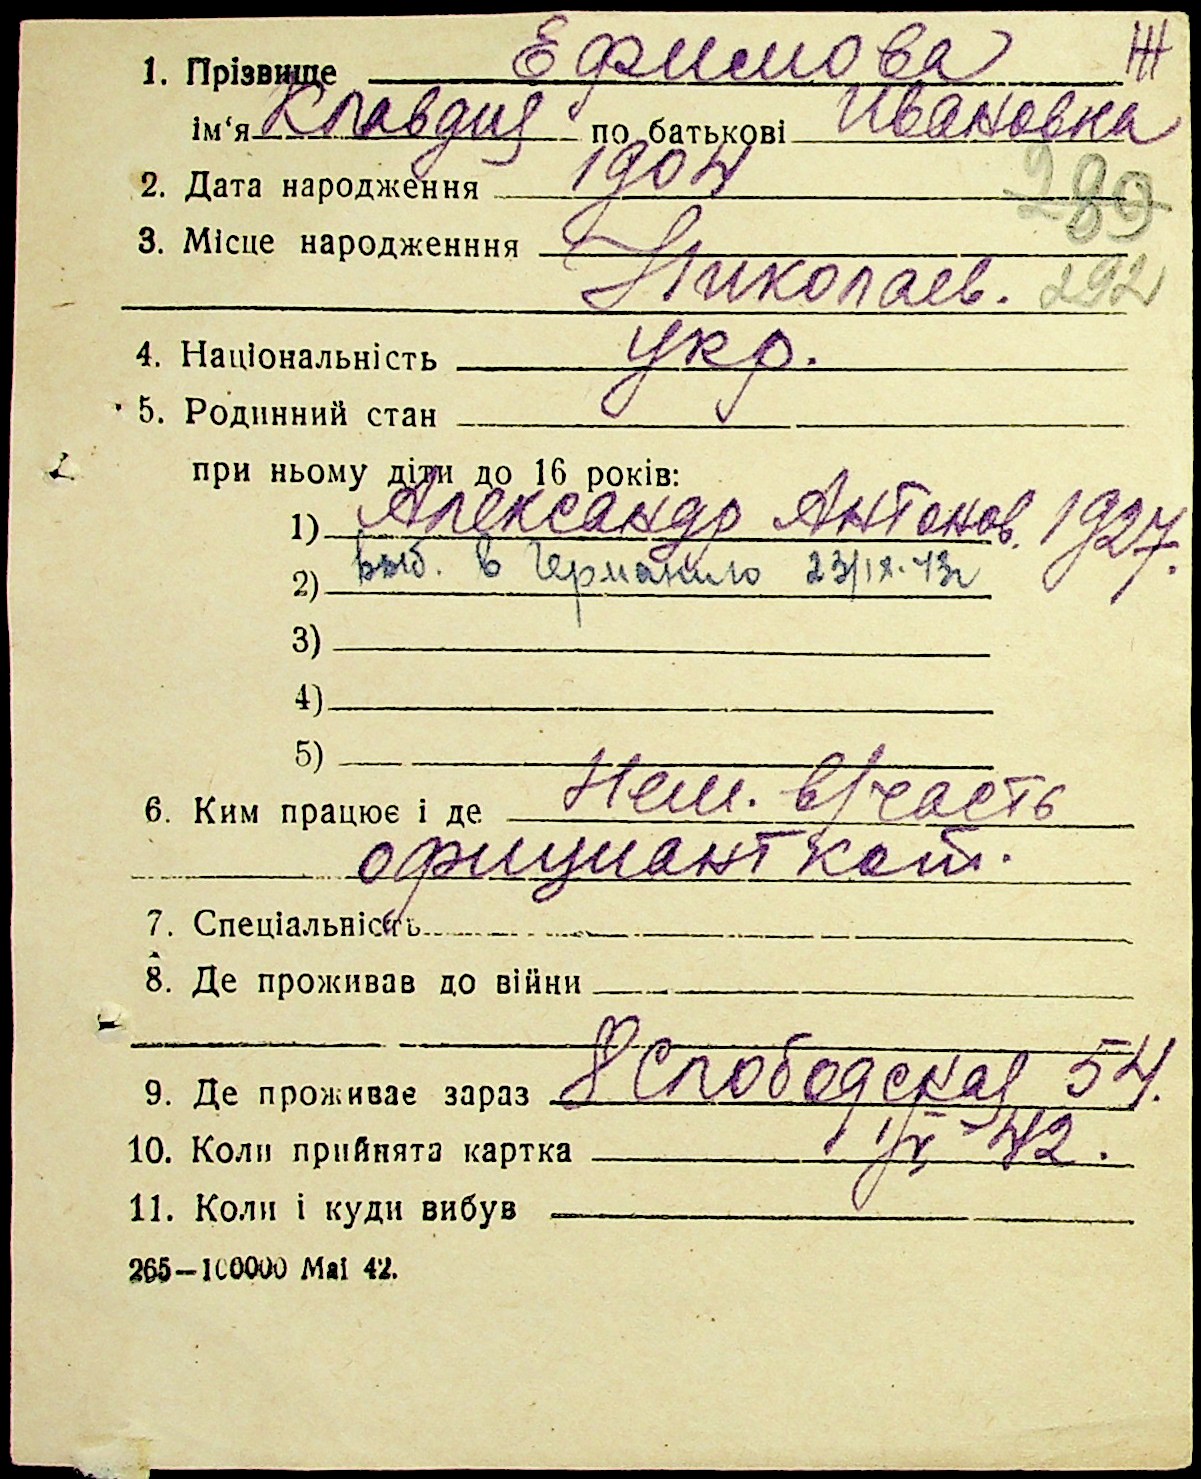 1. Прізвище Ефимова Ж
ім‘я Клавдия по батькові Ивановна
2. Дата народження 1904
289
3. Місце народженння
Николаев. 292
4. Національність укр.
5. Родинний стан
при ньому діти до 16 років:
1) Александр Антонов. 1927.
2) выб. в Германию 23/IX-43г
3)
4)
5)
6. Ким працює і де Нем. в/часть
официантк
7. Спеціальність
8. Де проживав до війни
9. Де проживає зараз 8 Слободская 54.
10. Коли прийнята картка 42.
11. Коли і куди вибув
265—100000 Маі 42.